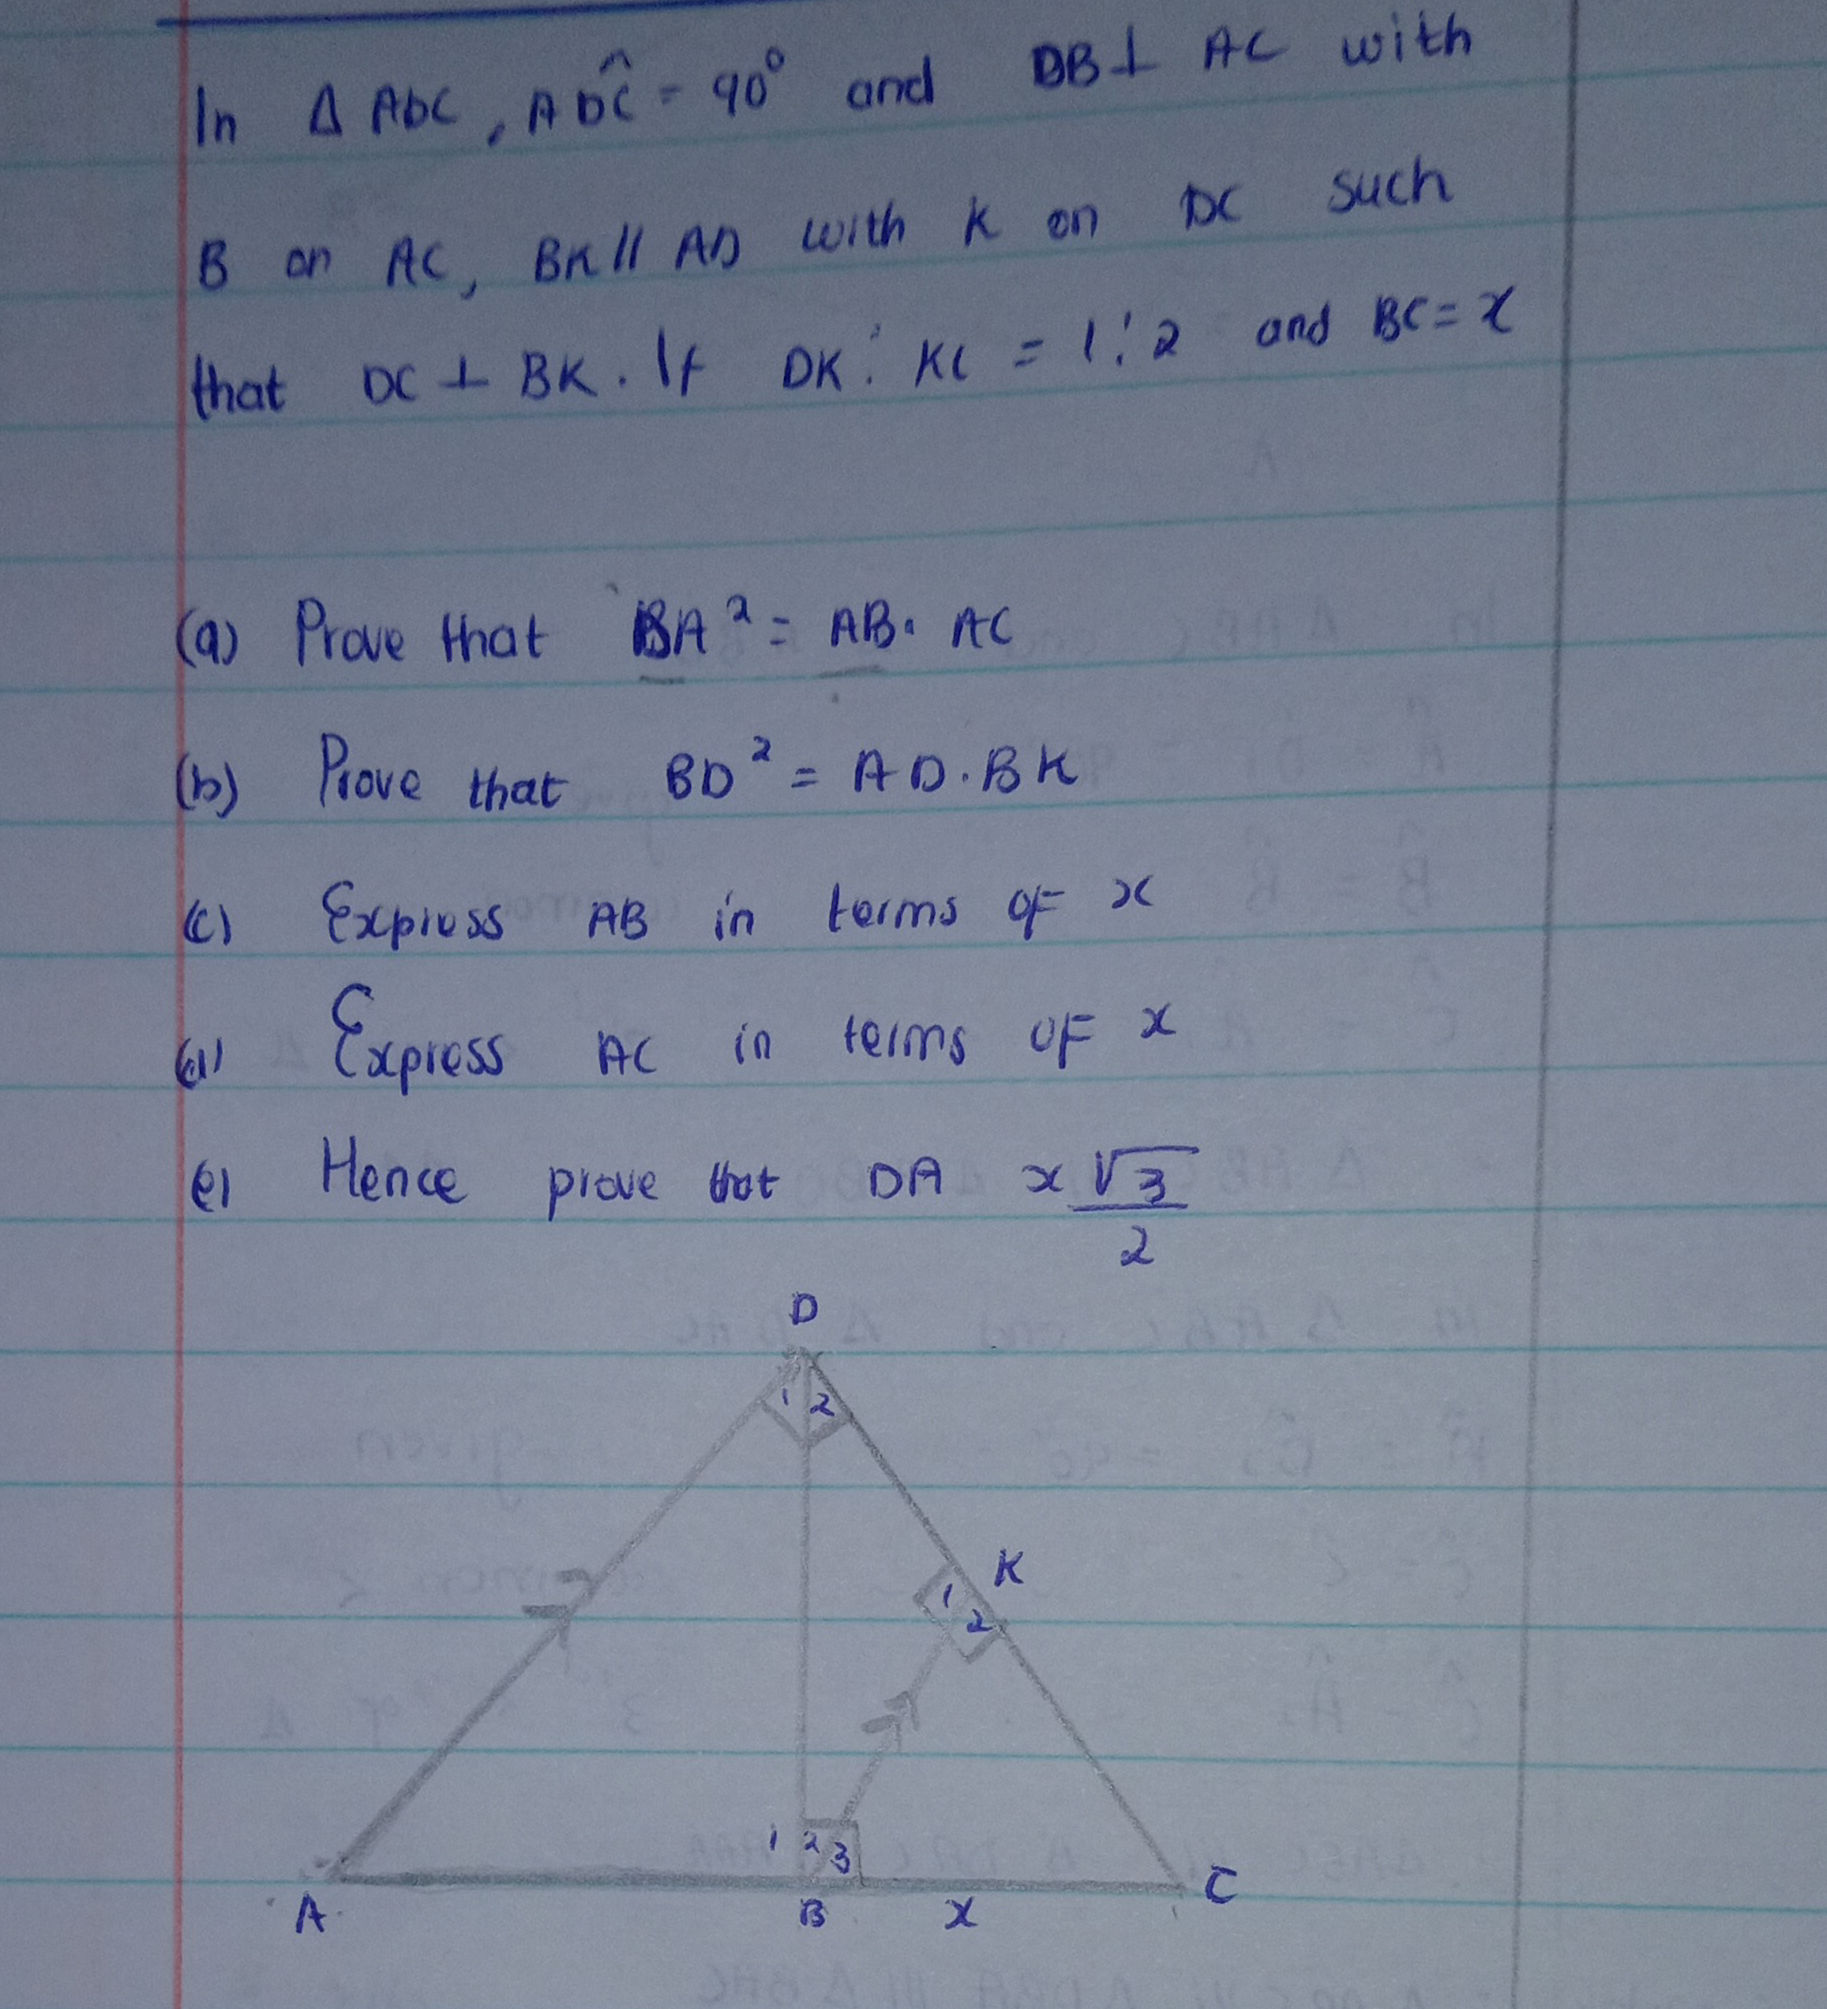 In Δ ADC, AD̂C = 90° and DB⊥ AC with
B on AC, BK // AD with K on DC such
that DC ⊥ BK. If DK : KC = 1 : 2 and BC = x
(a) Prove that BA² = AB. AC
(b) Prove that BD² = AD. BK
(c) Express AB in terms of x
(d) Express AC in terms of x
(e) Hence prove that DA x√3/2
D
1 2
K
1
2
1 2 3
A B x C